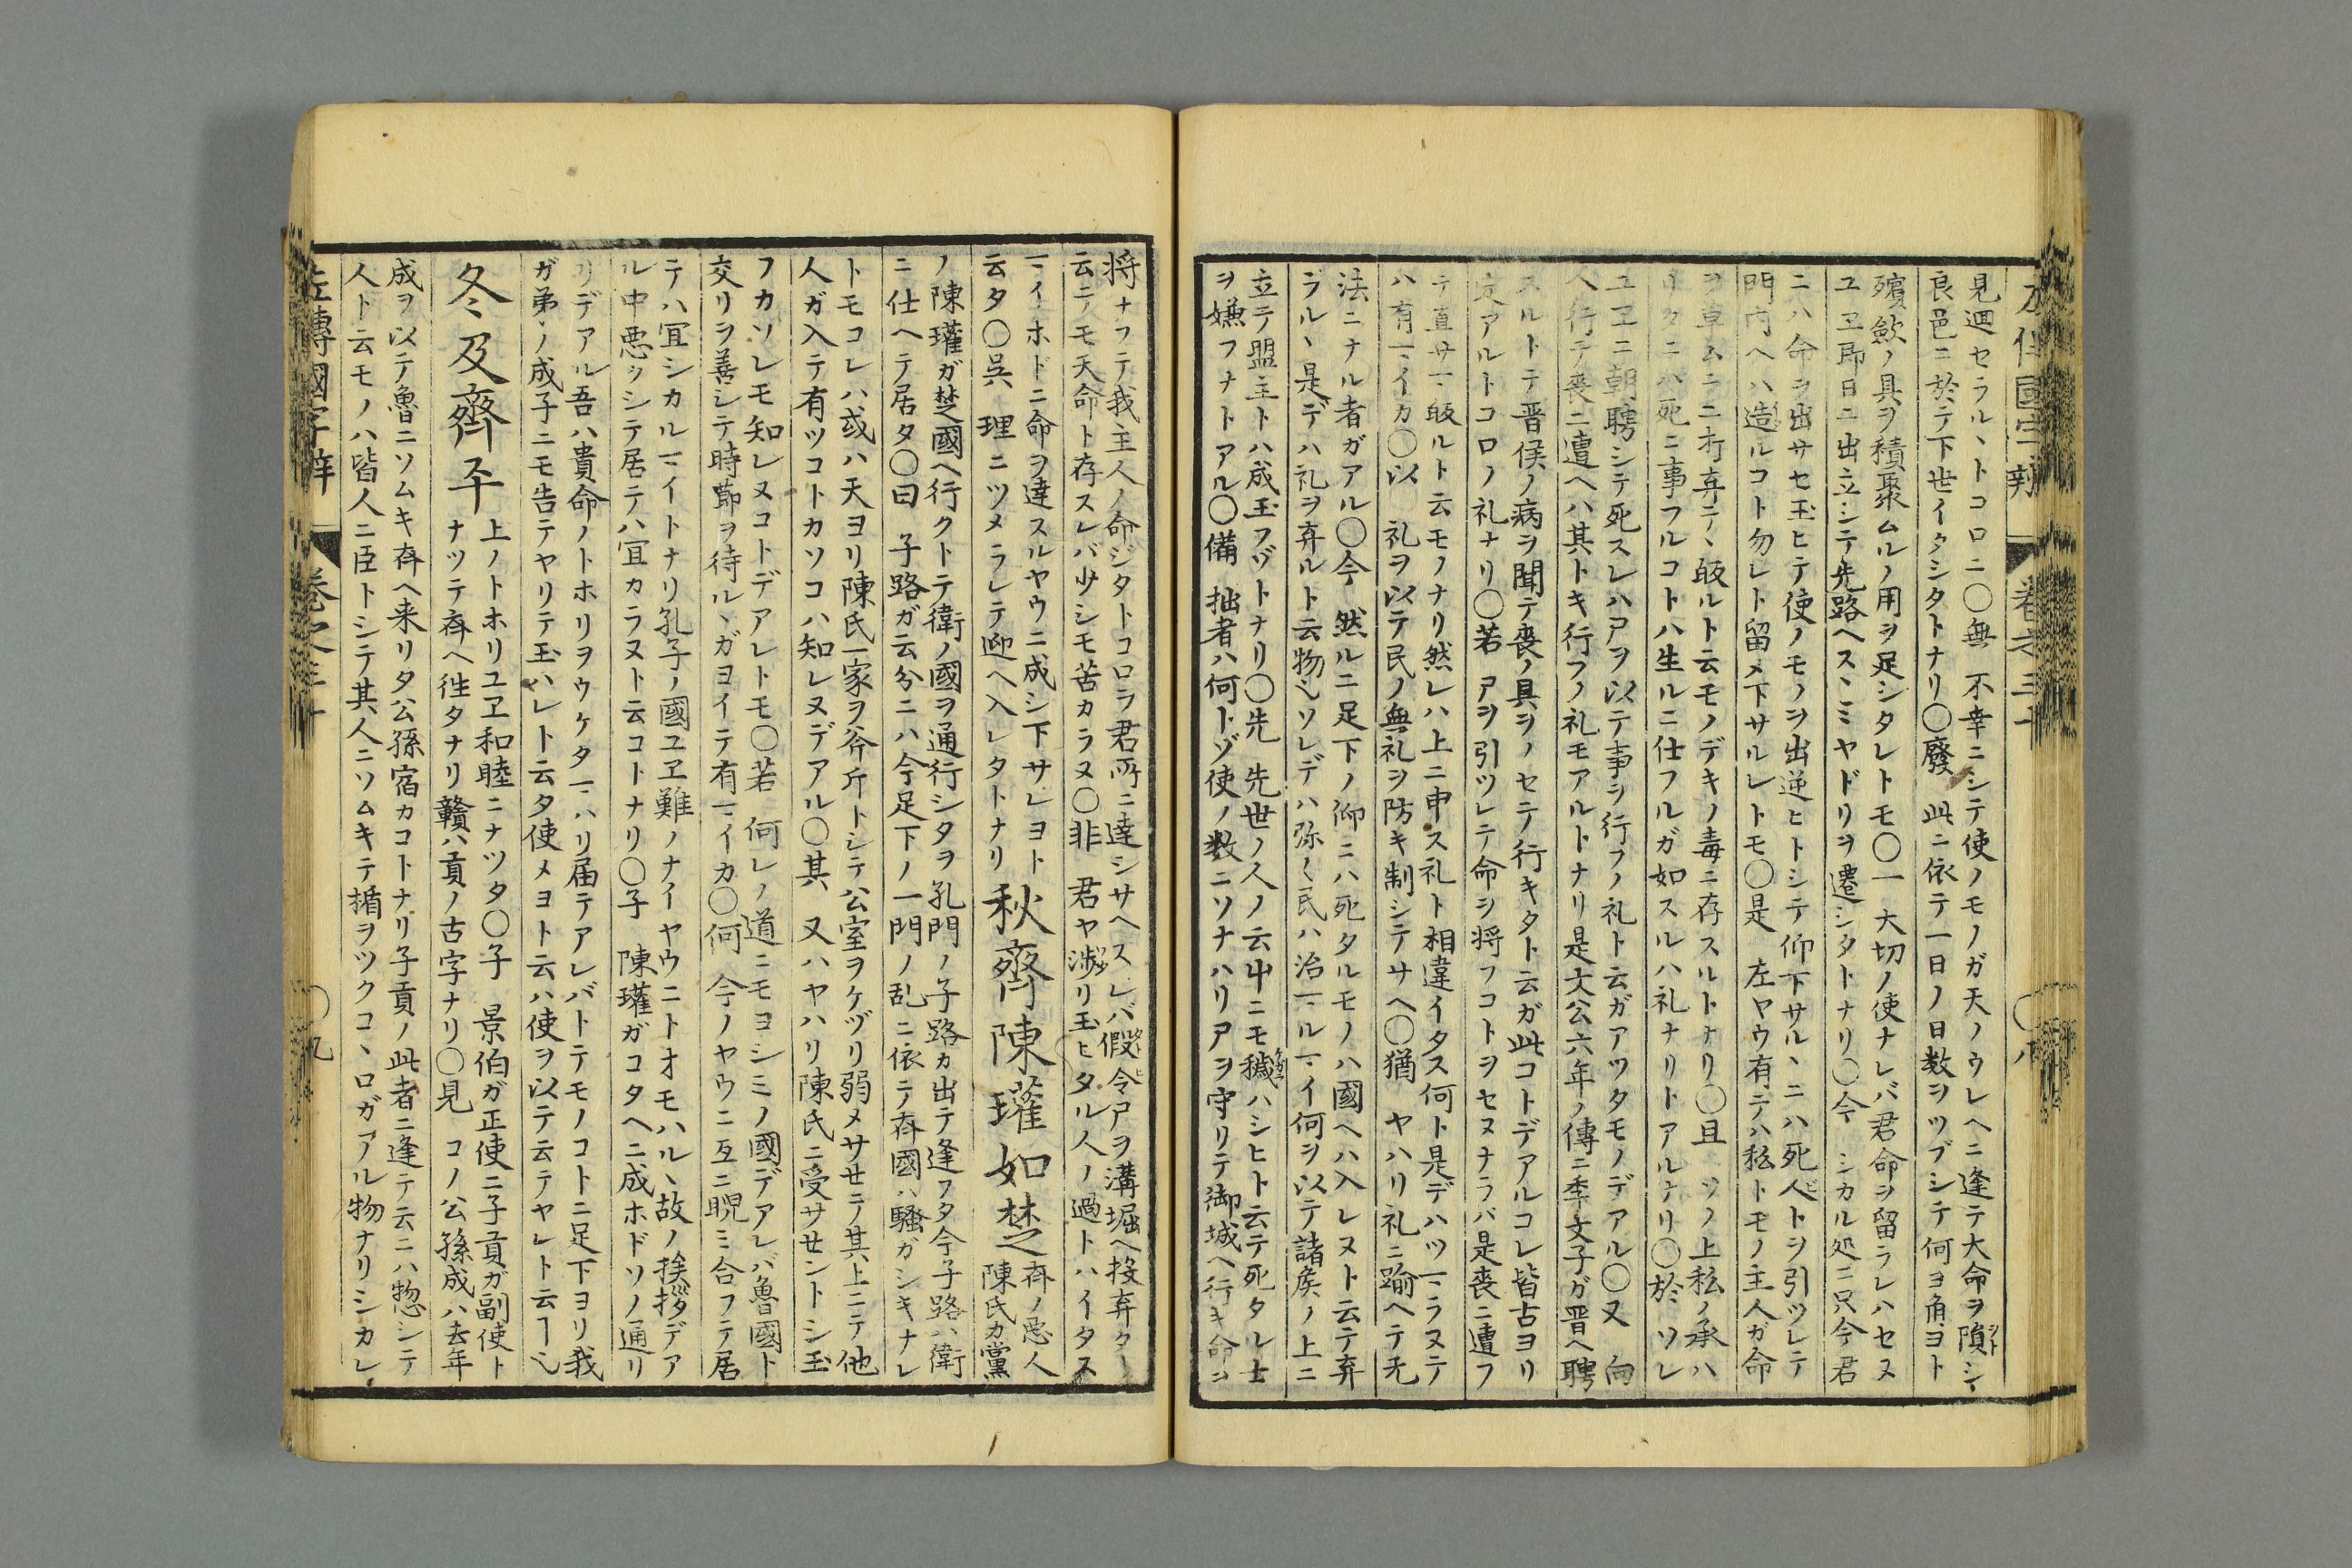 見廻セラルヽトコロニ〇無　不幸ニシテ使ノモノガ天ノウレヘニ逢テ大命ヲ隕シ
良邑ニ於テ下世イタシタトナリ〇廢　此ニ依テ一日ノ日数ヲツブシテ何ヨ角ヨト
殯斂ノ具ヲ積聚ムルノ用ヲ足シタレトモ〇一　大切ノ使ナレバ君命ヲ留ラレハセヌ
ユヱ即日ニ出立シテ先路ヘスヽミヤドリヲ遷シタトナリ〇今　シカル処ニ只今君
ニハ命ヲ出サセ玉ヒテ使ノモノヲ出逆ヒトシテ仰下サルヽニハ死人トヲ引ツレテ
門内ヘハ造ルコト勿レト留メ下サルレトモ〇是　左ヤウ有テハ私トモノ主人ガ命
ヲ草ムラニ打弃テヽ皈ルト云モノデキノ毒ニ存スルトナリ〇且　ソノ上私ノ承ハ
リタニハ死ニ事フルコトハ生ルニ仕フルガ如スルハ礼ナリトアルナリ〇於　ソレ
ユヱニ朝聘シテ死スレハ尸ヲ以テ事ヲ行フノ礼ト云ガアツタモノデアル〇又　向
ヘ行テ喪ニ遭ヘハ其トキ行フノ礼モアルトナリ是文公六年ノ傳ニ季文子ガ晋ヘ聘
スルトテ晋侯ノ病ヲ聞テ喪ノ具ヲノセテ行キタト云ガ此コトデアルコレ皆古ヨリ
定アルトコロノ礼ナリ〇若　尸ヲ引ツレテ命ヲ将フコトヲセヌナラバ是喪ニ遭フ
テ直サマ皈ルト云モノナリ然レハ上ニ申ス礼ト相違イタス何ト是デハツマラヌテ
ハ有マイカ〇以　礼ヲ以テ民ノ無礼ヲ防キ制シテサヘ〇猶　ヤハリ礼ニ踰ヘテ无
法ニナル者ガアル〇今　然ルニ足下ノ仰ニハ死タルモノハ國ヘハ入レヌト云テ弃
ラルヽ是デハ礼ヲ弃ルト云物ソレデハ弥民ハ治マルマイ何ヲ以テ諸侯ノ上ニ
立テ盟主トハ成玉フゾトナリ〇先　先世ノ人ノ云中ニモ穢ハシヒト云テ死タル士
ヲ嫌フナトアル〇備　拙者ハ何トゾ使ノ数ニソナハリ尸ヲ守リテ御城ヘ行キ命ヲ
巻之三十
〇八
将ナフテ我主人ノ命ジタトコロヲ君所ニ達シサヘスレバ假令尸ヲ溝堀ヘ投弃タト
云テモ天命ト存スレバ少シモ苦カラヌ〇非　君ヤ渉リ玉ヒタル人ノ過トハイタス
マイホドニ命ヲ達スルヤウニ成シ下サレヨト　秋齊陳瓘如楚　斉ノ悪人
云タ〇呉　理ニツメラレテ迎ヘ入レタトナリ　陳氏カ黨
ノ陳瓘ガ楚國ヘ行クトテ衛ノ國ヲ通行シタヲ孔門ノ子路カ出テ逢フタ今子路ハ衛
ニ仕ヘテ居タ〇曰　子路ガ云分ニハ今足下ノ一門ノ乱ニ依テ斉國ハ騒ガシキナレ
トモコレハ或ハ天ヨリ陳氏一家ヲ斧斤トシテ公室ヲケヅリ弱メサセテ其上ニテ他
人ガ入テ有ツコトカソコハ知レヌデアル〇其　又ハヤハリ陳氏ニ受サセントシ玉
フカソレモ知レヌコトデアレトモ〇若　何レノ道ニモヨシミノ國デアレバ魯國ト
交リヲ善シテ時節ヲ待ルヽガヨイテ有マイカ〇何　今ノヤウニ互ニ睨ミ合フテ居
テハ冝シカルマイトナリ孔子ノ國ユヱ難ノナイヤウニトオモハルヽ故ノ挨拶デア
ル中悪クシテ居テハ冝カラヌト云コトナリ〇子　陳瓘ガコタヘニ成ホドソノ通リ
リデアル吾ハ貴命ノトホリヲウケタマハリ届テアレバトテモノコトニ足下ヨリ我
ガ弟ノ成子ニモ告テヤリテ玉ハレト云タ使メヨト云ハ使ヲ以テ云テヤレト云ヿ
冬及齊平　上ノトホリユヱ和睦ニナツタ〇子　景伯ガ正使ニ子貢ガ副使ト
ナツテ斉ヘ徃タナリ贛ハ貢ノ古字ナリ〇見　コノ公孫成ハ去年
成ヲ以テ魯ニソムキ斉ヘ来リタ公孫宿カコトナリ子貢ノ此者ニ逢テ云ニハ惣シテ
人ト云モノハ皆人ニ臣トシテ其人ニソムキテ楯ヲツクコヽロガアル物ナリシカレ
左傳國字辨
巻之三十
〇九